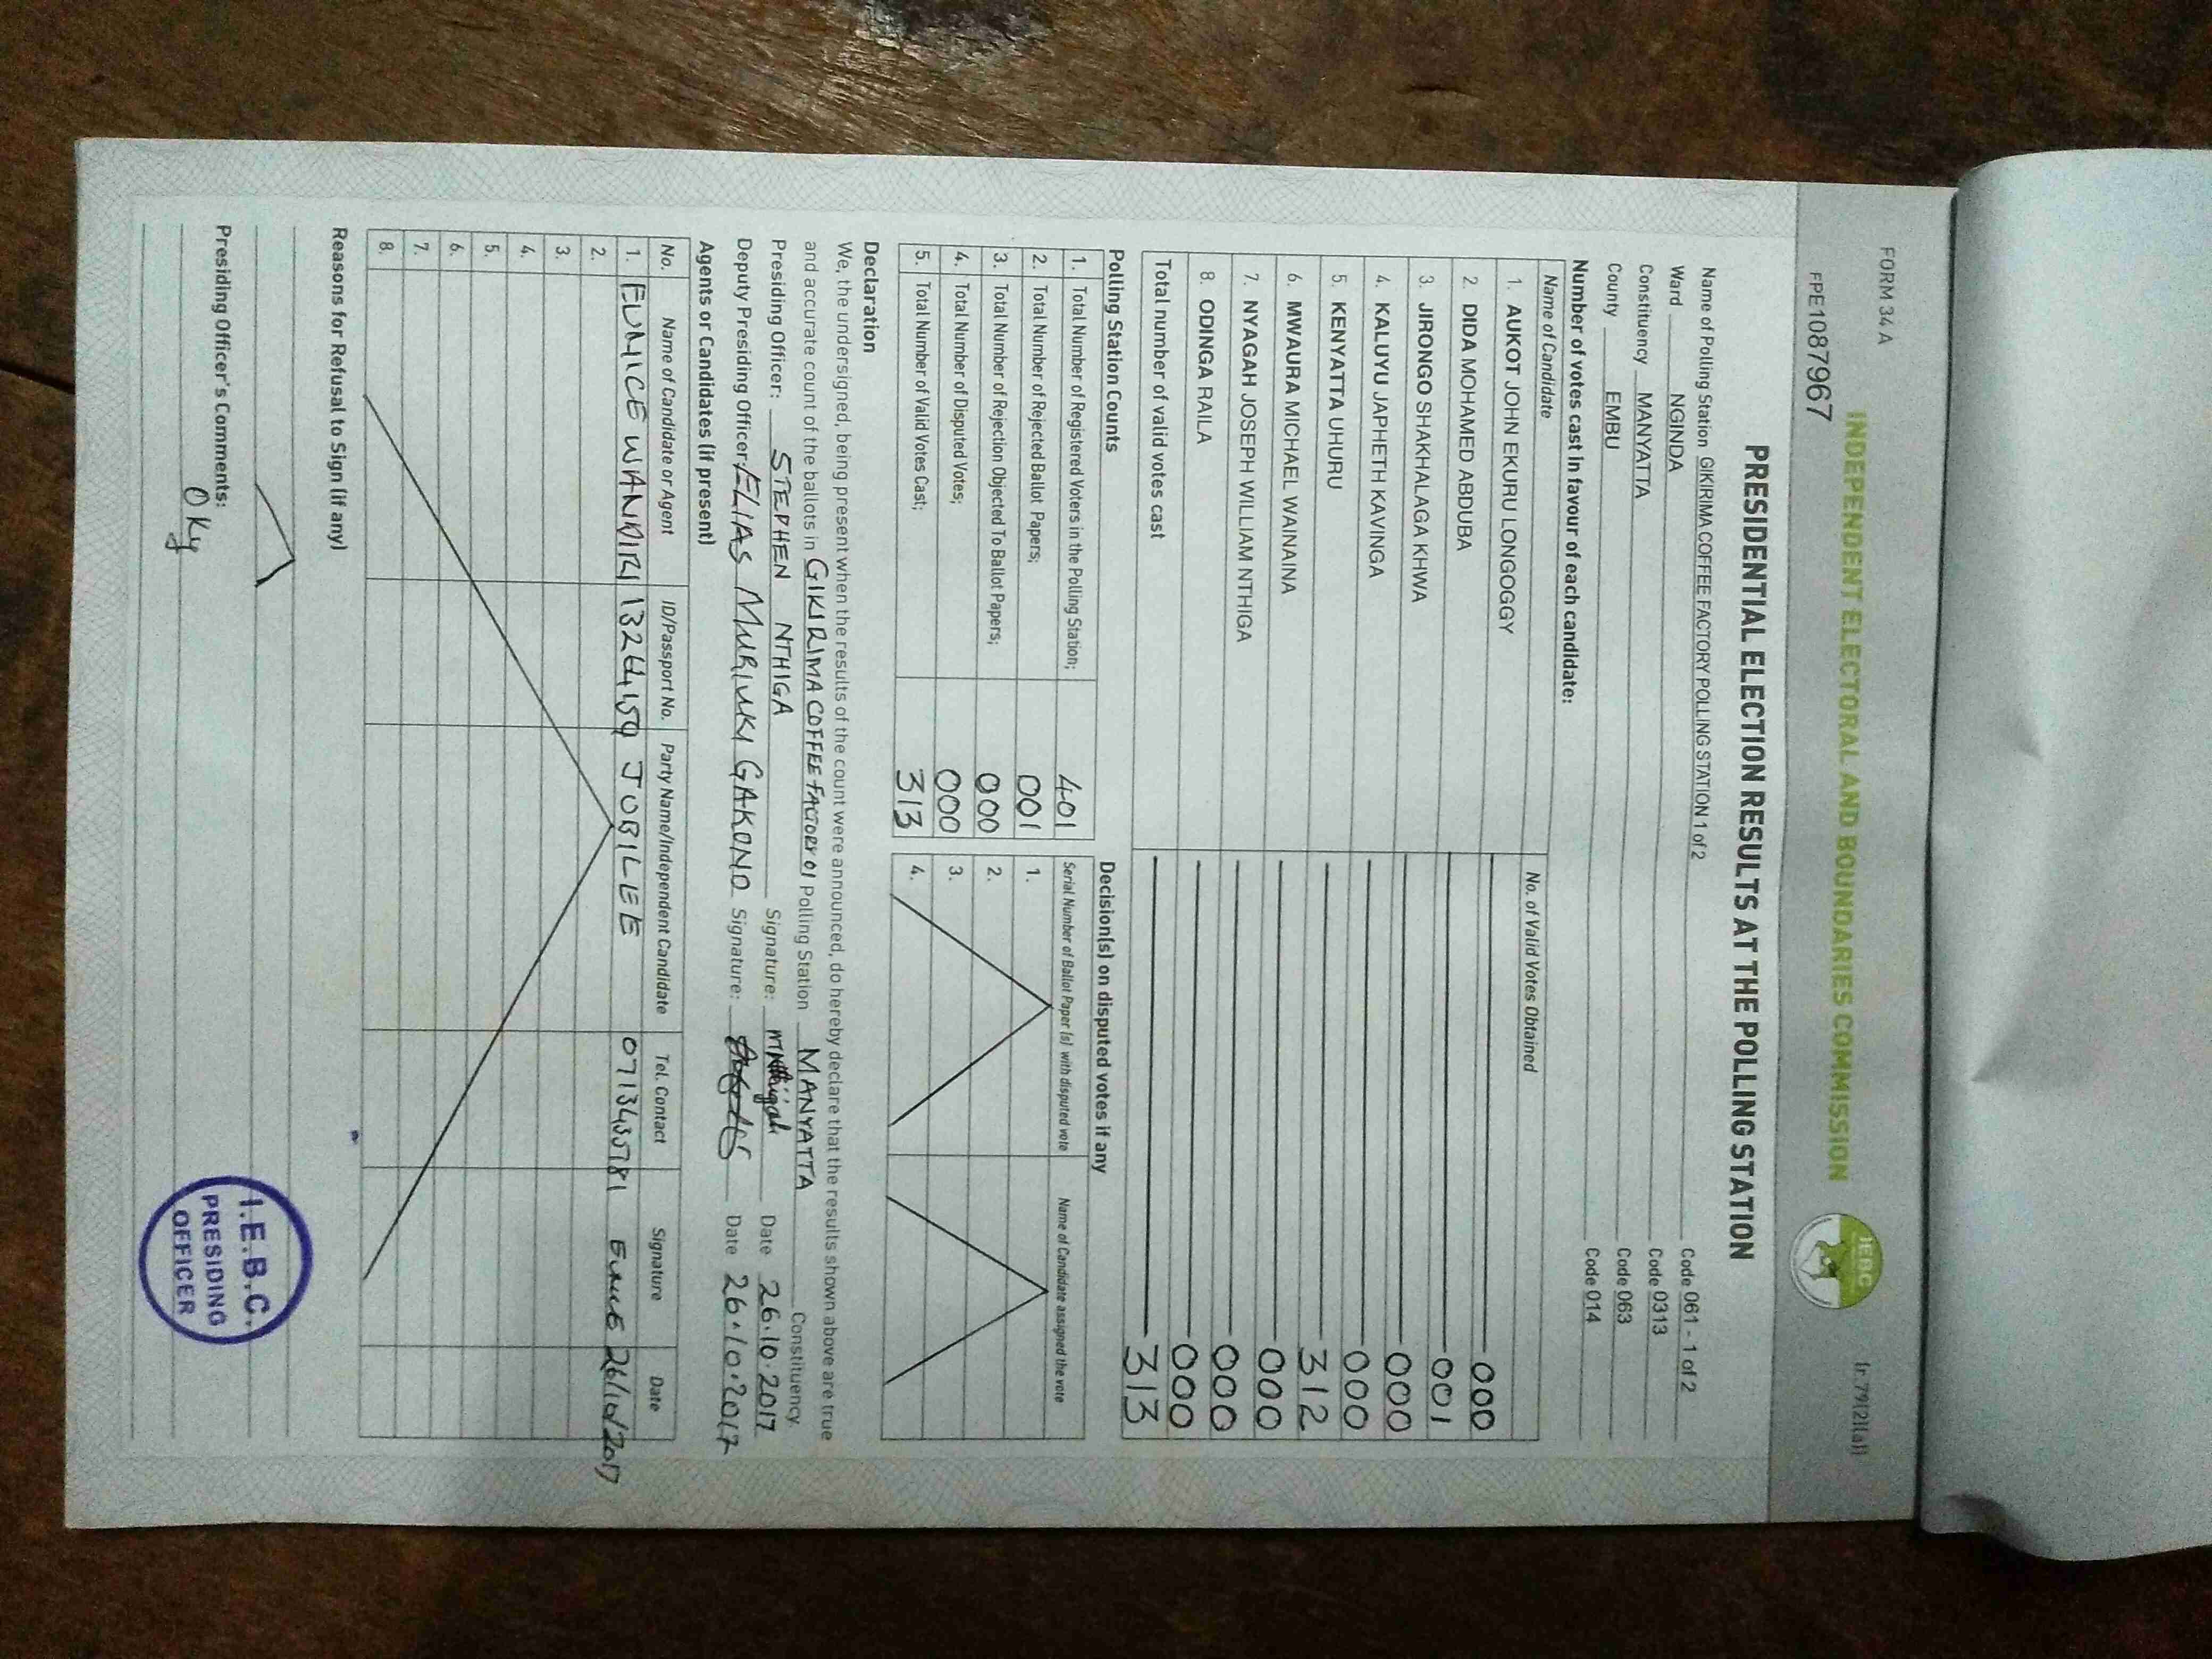 FORM 34 A
(r 79(2)(a))
INDEPENDENT ELECTORAL AND BOUNDARIES COMMISSION
IEBC
FPE1087967
PRESIDENTIAL ELECTION RESULTS AT THE POLLING STATION
Name of Polling Station GIKIRIMA COFFEE FACTORY POLLING STATION 1 of 2 Code 061 - 1 of 2
Ward NGINDA Code 0313
Constituency MANYATTA Code 063
County EMBU Code 014
Number of votes cast in favour of each candidate:
Name of Candidate No. of Valid Votes Obtained
1. AUKOT JOHN EKURU LONGOGGY 000
2. DIDA MOHAMED ABDUBA 001
3. JIRONGO SHAKHALAGA KHWA 000
4. KALUYU JAPHETH KAVINGA 000
5. KENYATTA UHURU 312
6. MWAURA MICHAEL WAINAINA 000
7. NYAGAH JOSEPH WILLIAM NTHIGA 000
8. ODINGA RAILA 000
Total number of valid votes cast 313
Polling Station Counts
1. Total Number of Registered Voters in the Polling Station; 401
2. Total Number of Rejected Ballot Papers; 001
3. Total Number of Rejection Objected To Ballot Papers; 000
4. Total Number of Disputed Votes; 000
5. Total Number of Valid Votes Cast; 313
Decision(s) on disputed votes if any
Serial Number of Ballot Paper (s) with disputed vote Name of Candidate assigned the vote
1.
2.
3.
4.
Declaration
We, the undersigned, being present when the results of the count were announced, do hereby declare that the results shown above are true
and accurate count of the ballots in GIKIRIMA COFFEE FACTORY 01 Polling Station MANYATTA Constituency.
Presiding Officer: STEPHEN NTHIGA Signature: Date 26.10.2017
Deputy Presiding Officer: ELIAS MURIUKI GAKONO Signature: Date 26.10.2017
Agents or Candidates (if present)
No. Name of Candidate or Agent ID/Passport No. Party Name/Independent Candidate Tel. Contact Signature Date
1. EUNICE WANDIRI JUBILEE 0713435781 26/10/2017
2.
3.
4.
5.
6.
7.
8.
Reasons for Refusal to Sign (if any)
Presiding Officer's Comments:
OKy
I.E.B.C.
PRESIDING
OFFICER